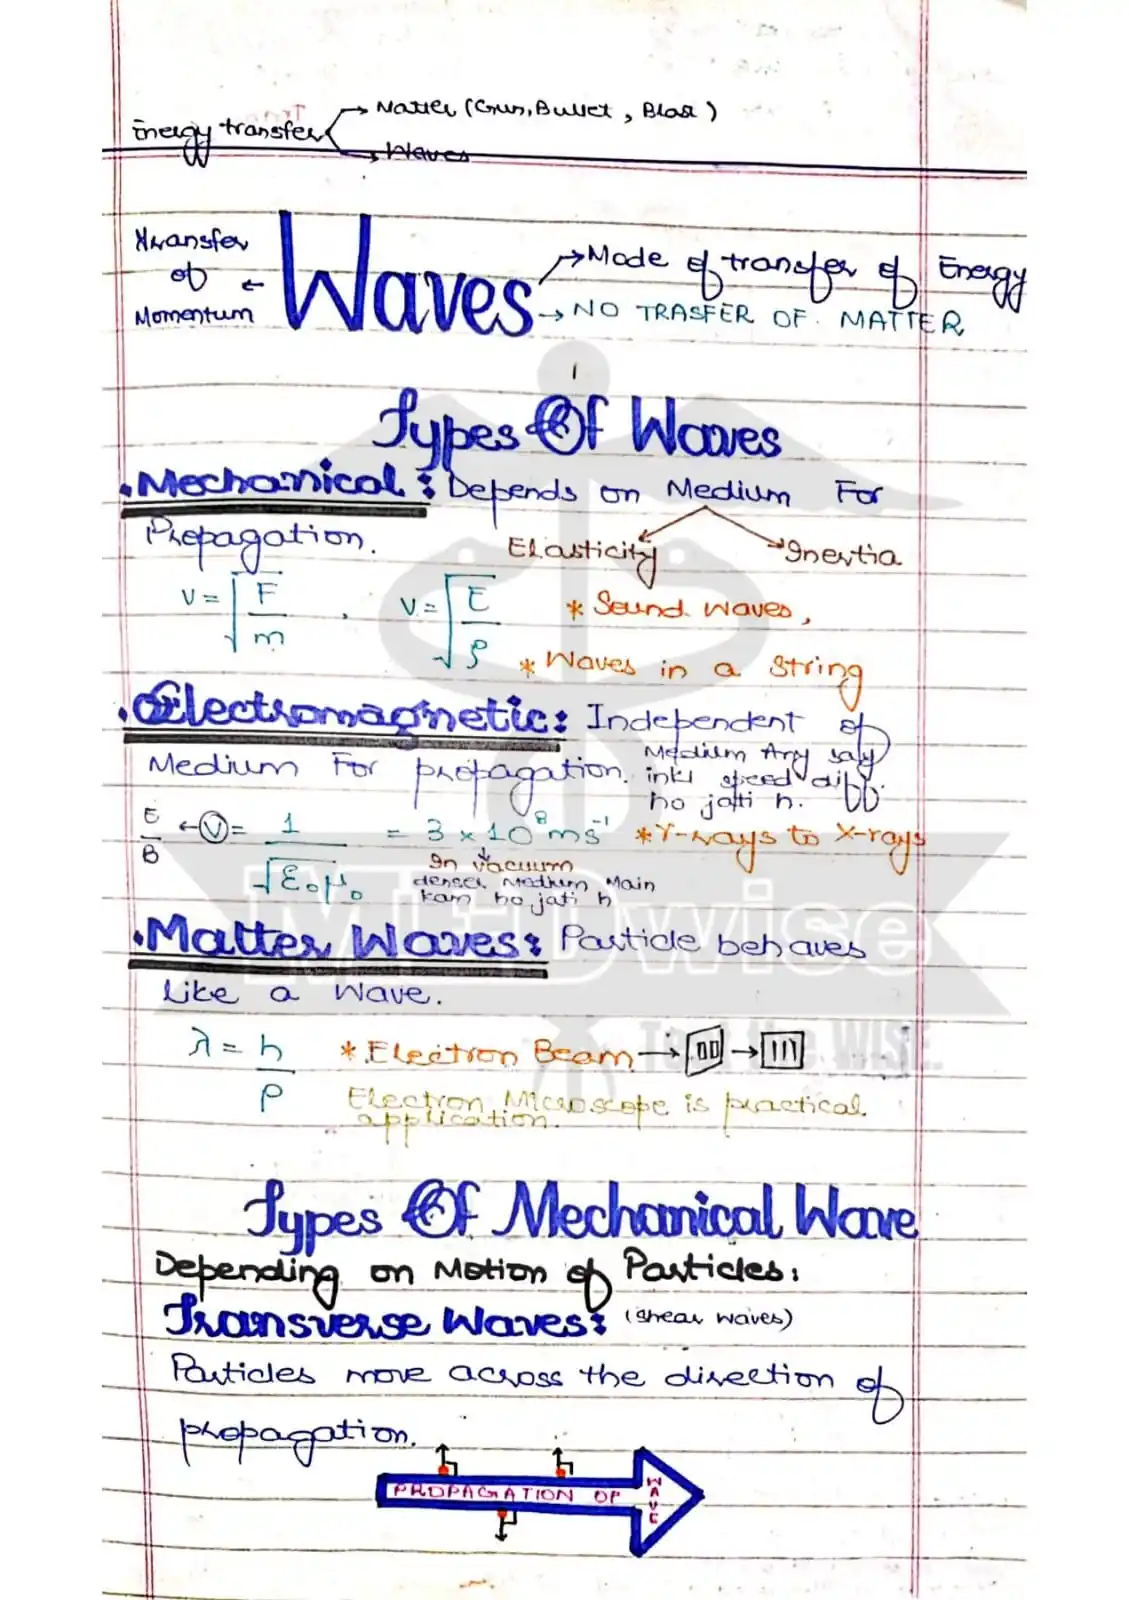 Matter (Gun, Bullet, Blast)
Energy transfer
Waves
Transfer of Momentum ←
Waves
→ Mode of transfer of Energy
→ NO TRASFER OF MATTER
Types Of Waves
• Mechanical: Depends on Medium For
Propagation.
Elasticity
Inertia
V = √F/m , V = √E/ρ
* Sound waves,
* Waves in a String
• Electromagnetic: Independent of
Medium For propagation.
Medium Any say
inki speed diff.
ho jati h.
E/B ← V = 1/√ε₀μ₀ = 3 × 10⁸ ms⁻¹
* γ-rays to X-rays
In vacuum
denser Medium Main
kam ho jati h
• Matter Waves: Particle behaves
Like a Wave.
λ = h/P
* Electron Beam → →
Electron Microscope is practical
application.
MEDwise
WISE.
Types Of Mechanical Wave
Depending on Motion of Particles:
Transverse Waves: (Shear waves)
Particles move across the direction of
propagation.
PROPAGATION OF WAVE